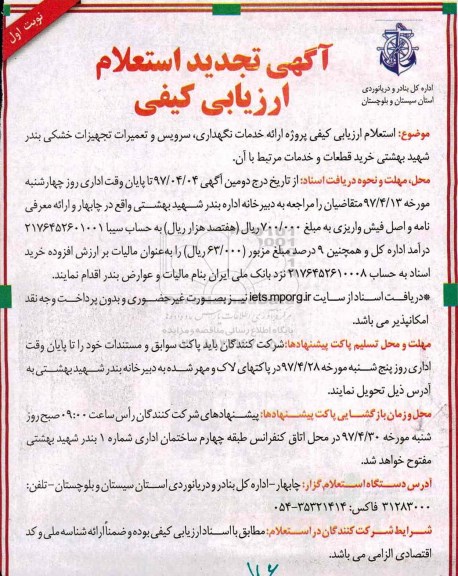 نوبت اول
اداره کل بنادر و دریانوردی
استان سیستان و بلوچستان
آگهی تجدید استعلام
ارزیابی کیفی
موضوع: استعلام ارزیابی کیفی پروژه ارائه خدمات نگهداری، سرویس و تعمیرات تجهیزات خشکی بندر
شهید بهشتی خرید قطعات و خدمات مرتبط با آن.
محل، مهلت و نحوه دریافت اسناد: از تاریخ درج دومین آگهی ۹۷/۰۴/۰۴ تا پایان وقت اداری روز چهارشنبه
مورخه ۹۷/۴/۱۳ متقاضیان را مراجعه به دبیرخانه اداره بندر شهید بهشتی واقع در چابهار و ارائه معرفی
نامه و اصل فیش واریزی به مبلغ ۷۰۰/۰۰۰ ریال (هفتصد هزار ریال) به حساب سیبا ۲۱۷۶۴۵۲۶۰۱۰۰۱
درآمد اداره کل و همچنین ۹ درصد مبلغ مزبور (۶۳/۰۰۰ ریال) را به‌عنوان مالیات بر ارزش افزوده خرید
اسناد به حساب ۲۱۷۶۴۵۲۶۱۰۰۰۸ نزد بانک ملی ایران بنام مالیات و عوارض بندر اقدام نمایند.
*دریافت اسناد از سایت iets.mporg.ir نیز بصورت غیرحضوری و بدون پرداخت وجه نقد
امکانپذیر می باشد.
پایگاه اطلاع رسانی مناقصه و مزایده
مهلت و محل تسلیم پاکت پیشنهادها: شرکت کنندگان باید پاکت سوابق و مستندات خود را تا پایان وقت
اداری روز پنج شنبه مورخه ۹۷/۴/۲۸ در پاکتهای لاک و مهر شده به دبیرخانه بندر شهید بهشتی به
آدرس ذیل تحویل نمایند.
محل و زمان بازگشایی پاکت پیشنهادها: پیشنهادهای شرکت کنندگان رأس ساعت ۰۹:۰۰ صبح روز
شنبه مورخه ۹۷/۴/۳۰ در محل اتاق کنفرانس طبقه چهارم ساختمان اداری شماره ۱ بندر شهید بهشتی
مفتوح خواهد شد.
آدرس دستگاه استعلام گزار: چابهار-اداره کل بنادر و دریانوردی استان سیستان و بلوچستان-تلفن:
۳۱۲۸۳۰۰۰ فاکس: ۳۵۳۲۱۴۱۴-۰۵۴
شرایط شرکت کنندگان در استعلام: مطابق با اسناد ارزیابی کیفی بوده و ضمناً ارائه شناسه ملی و کد
اقتصادی الزامی می باشد.